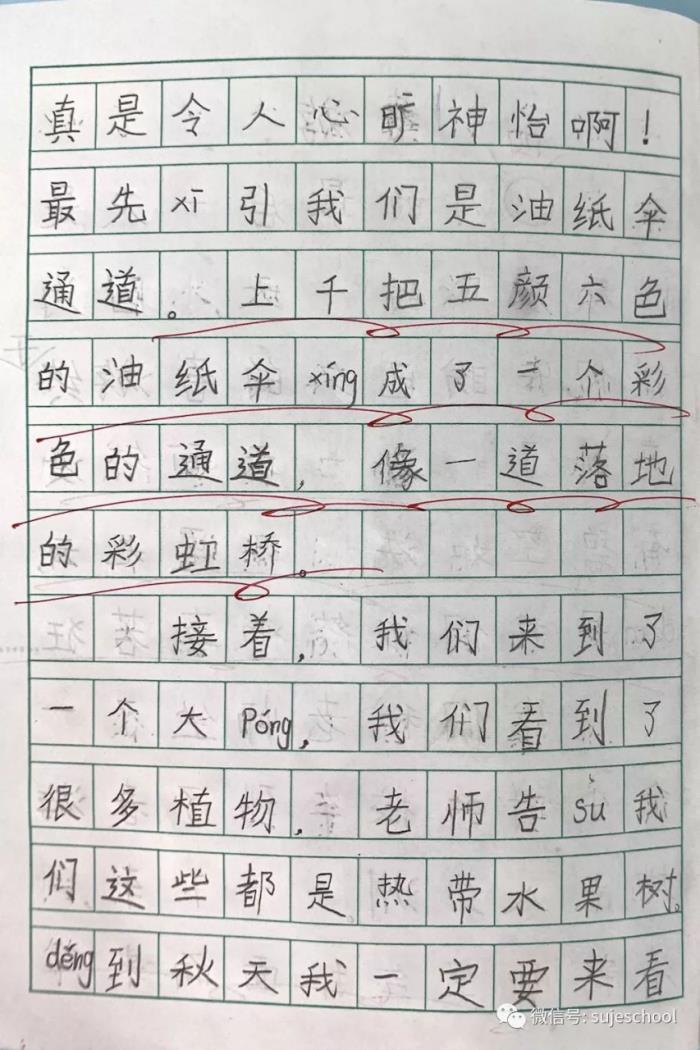 真是令人心旷神怡啊！
最先xī引我们是油纸伞
通道。上千把五颜六色
的油纸伞xíng成了一个彩
色的通道，像一道落地
的彩虹桥。
接着，我们来到了
一个大Póng，我们看到了
很多植物，老师告sù我
们这些都是热带水果树。
děng到秋天我一定要来看
微信号: sujeschool